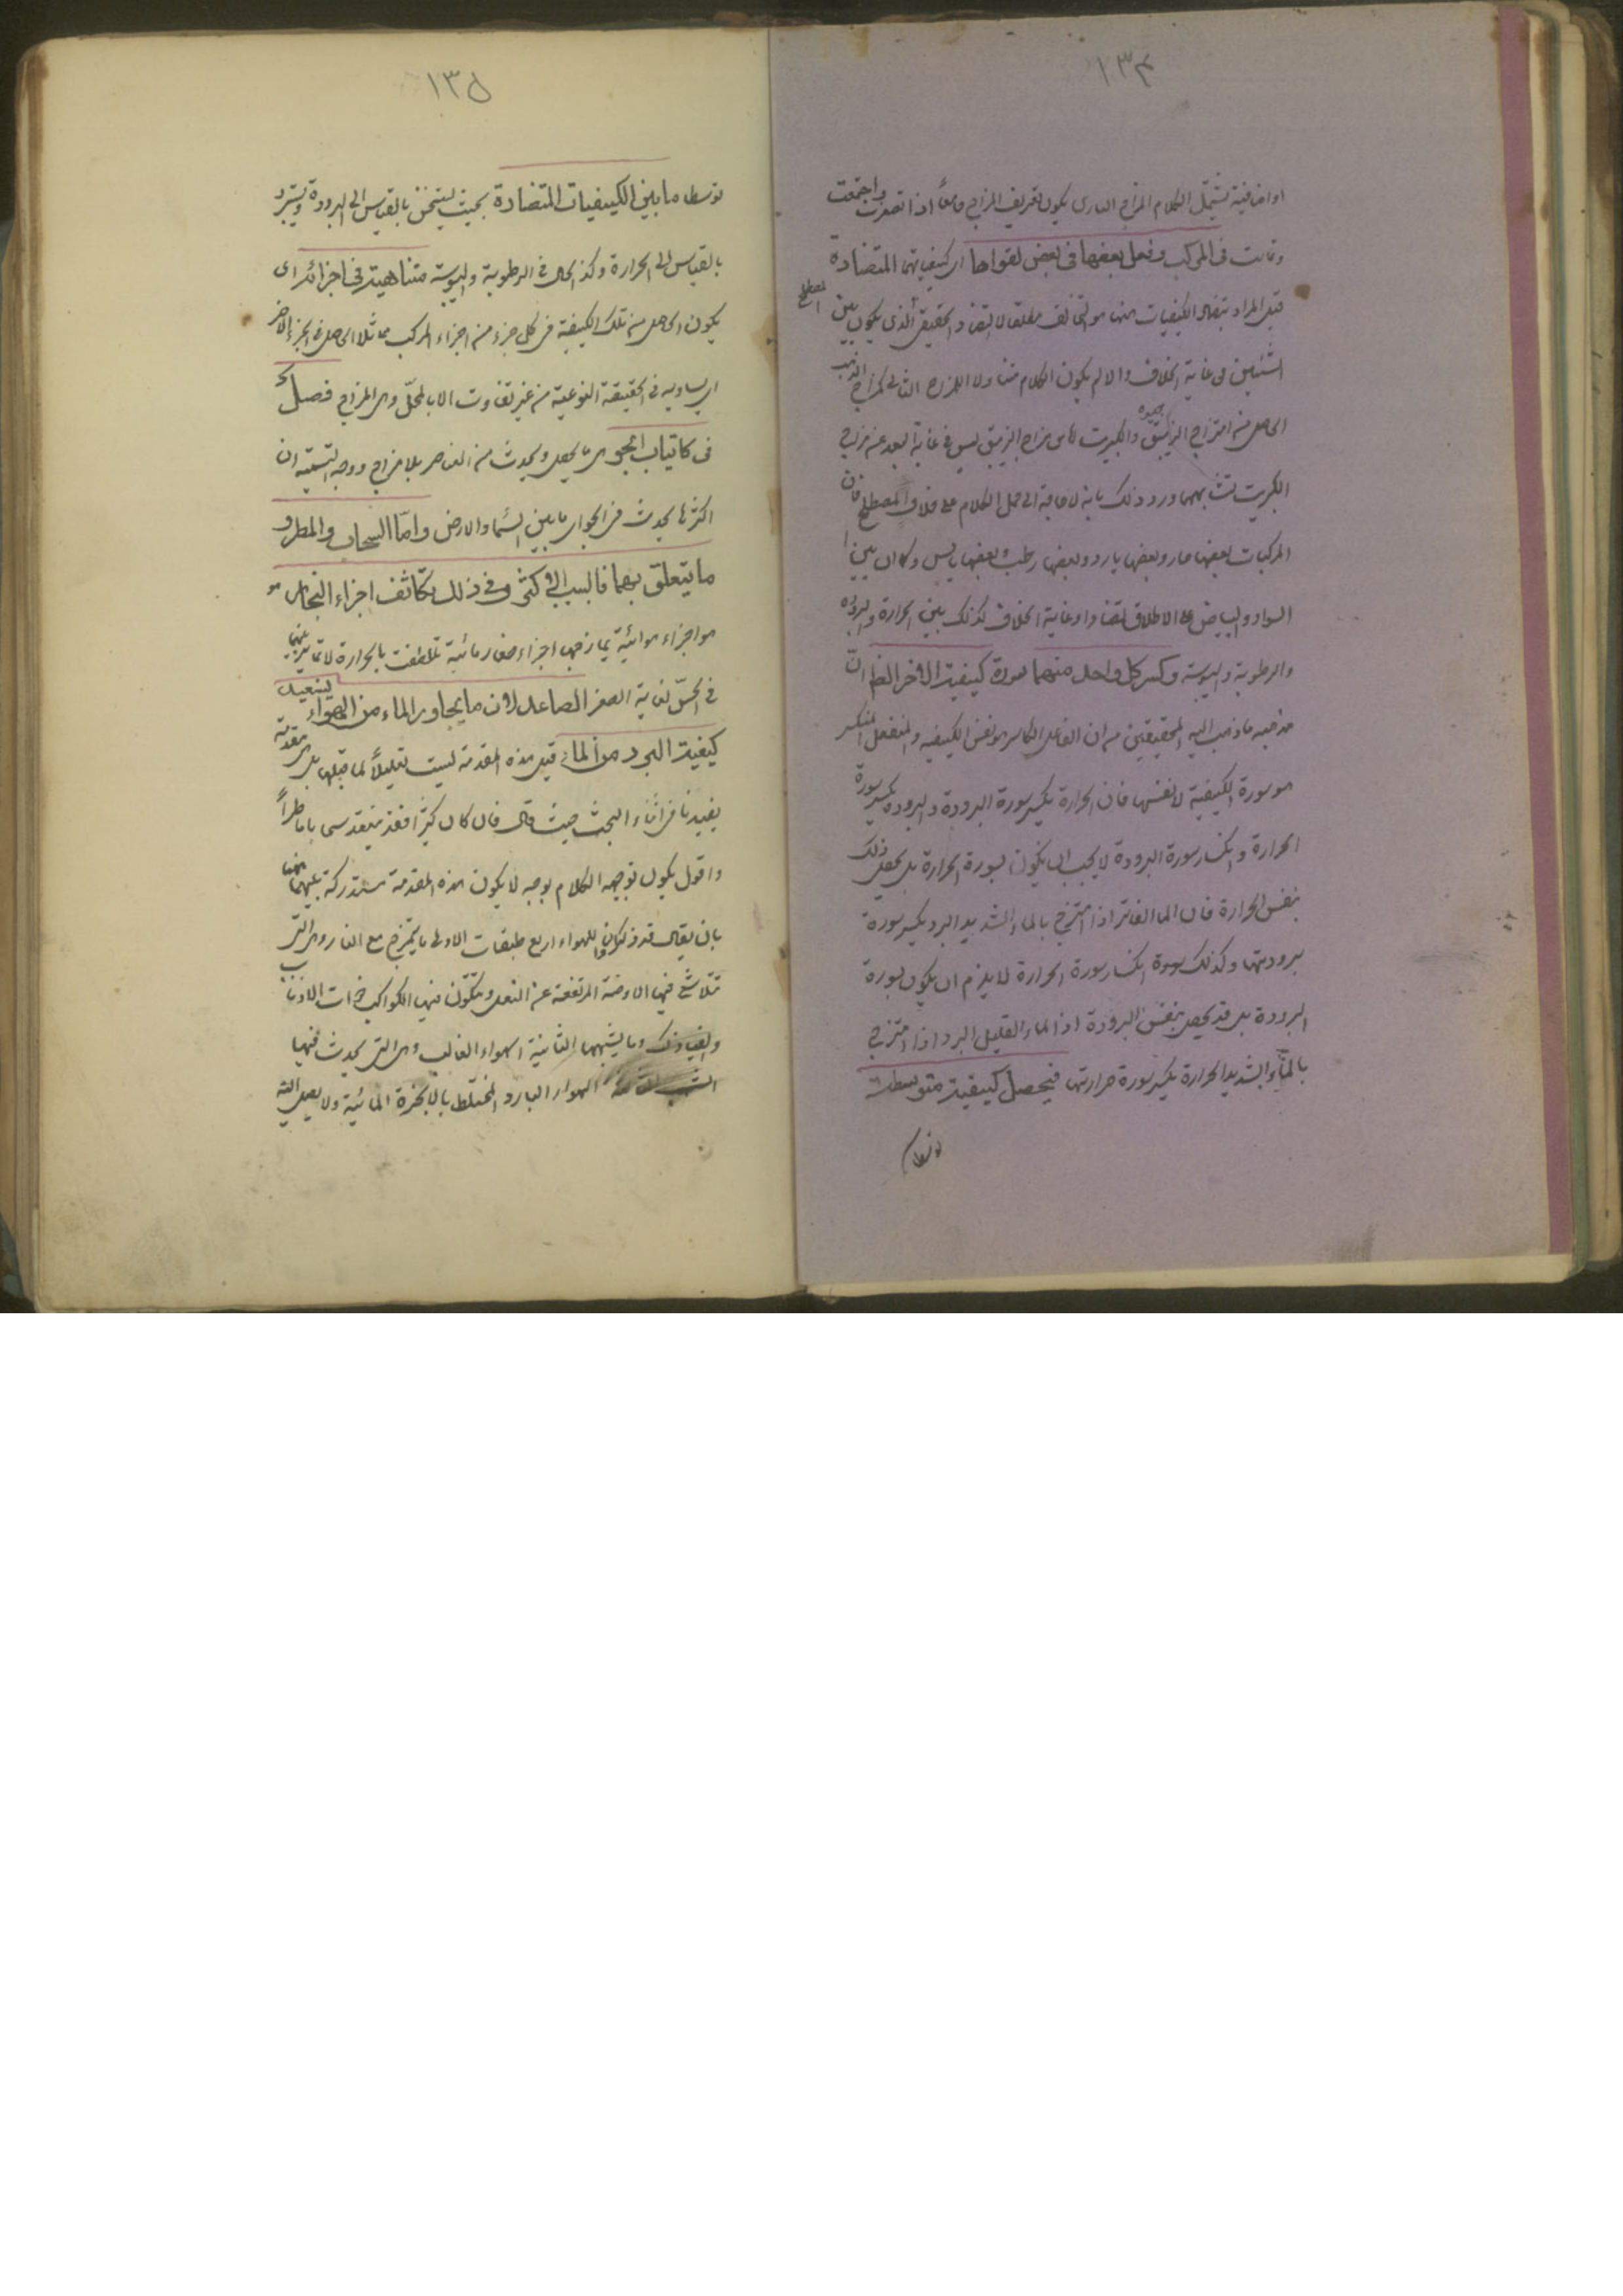 ١٣٤
او اضافية تشتمل الكلام المزاج الثانى يكون تعريف المزاج جامعاً اذا تصغرت واجتمعت
وتماست فى المركب وفعل بعضها فى بعض بقواها اى كيفياتها المتضادة
قيل المراد بتضاد الكيفيات ههنا هو التخالف مطلقا لا التضاد الحقيقى الذى يكون بين المصطلح
الشيئين فى غاية الخلاف والا لم يكون الكلام متناولا للمزاج الثانى كمزاج الذهب
الحاصل من امتزاج الزيبق جيوه والكبريت لان مزاج الزيبق ليس فى غاية البعد عن مزاج
الكبريت لتشابههما ورد ذلك بانه لا حاجة الى حمل الكلام على خلاف المصطلح فان
المركبات بعضها حار وبعضها بارد وبعضها رطب وبعضها يابس وكما ان بين
السواد والبياض على الاطلاق تضادا وغاية الخلاف كذلك بين الحرارة والبرودة
والرطوبة واليبوسة وكسر كل واحد منهما سورة كيفية الاخر الظاهر ان
مذهبه ما ذهب اليه المحققين من ان الفاعل الكاسر هو نفس الكيفية والمنفعل المنكسر
هو سورة الكيفية لا نفسها فان الحرارة يكسر سورة البرودة والبرودة يكسر سورة
الحرارة وانكسار سورة البرودة لا يجب ان يكون بسورة الحرارة بل يحصل ذلك
بنفس الحرارة فان الماء الفاتر اذا امتزج بالماء الشديد البرد يكسر سورة
برودتها وكذلك انكسار سورة الحرارة لا يلزم ان يكون بسورة
البرودة بل قد يحصل بنفس البرودة اذ الماء القليل البرد اذا امتزج
بالماء الشديد الحرارة يكسر سورة حرارتها فيحصل كيفية متوسطة
١٣٥
توسطا ما بين الكيفيات المتضادة بحيث يستسخن بالقياس الى البرودة ويستبرد
بالقياس الى الحرارة وكذا الحال فى الرطوبة واليبوسة متشابهة فى اجزائه اى
يكون الحاصل من تلك الكيفية فى كل جزء من اجزاء المركب مماثلا للحاصل فى الجزء الاخر
اى يساويه فى الحقيقة النوعية من غير تفاوت الا بالمحل وهى المزاج فصل
فى كائنات الجو وهى ما يحصل ويحدث من العناصر بلا مزاج ووجه التسمية ان
اكثرها يحدث فى الجو اى ما بين السماء والارض واما السحاب والمطر و
ما يتعلق بهما فالسبب الاكثرى فى ذلك تكاثف اجزاء البخار هو
هو اجزاء هوائية يمازجها اجزاء صغار مائية تلطفت بالحرارة لا تمايز بينهما
فى الحس لغاية الصغر الصاعد لان ما يجاور الماء من الهواء يستفيد
كيفية البرد من الماء قيل هذه المقدمة ليست تعليلاً لما قبلها بل هى مقدمة
يفيدنا فى اثناء البحث حيث قال فان كان كثيرا فقد ينعقد سحابا ماطراً
واقول يكون توجيه الكلام بوجه لا يكون هذه المقدمة مستدركة ههنا
بان يقال قد ذكروا للهواء اربع طبقات الاولى ما يمتزج مع النار وهى التى
تتلاشى فيها الادخنة المرتفعة عن السفل ويتكون فيها الكواكب ذوات الاذناب
والنيازك وما يشبهها الثانية الهواء الغالب وهى التى يحدث فيها
الشهب الثالثة الهواء البارد المختلط بالابخرة المائية ولا يصل اليه